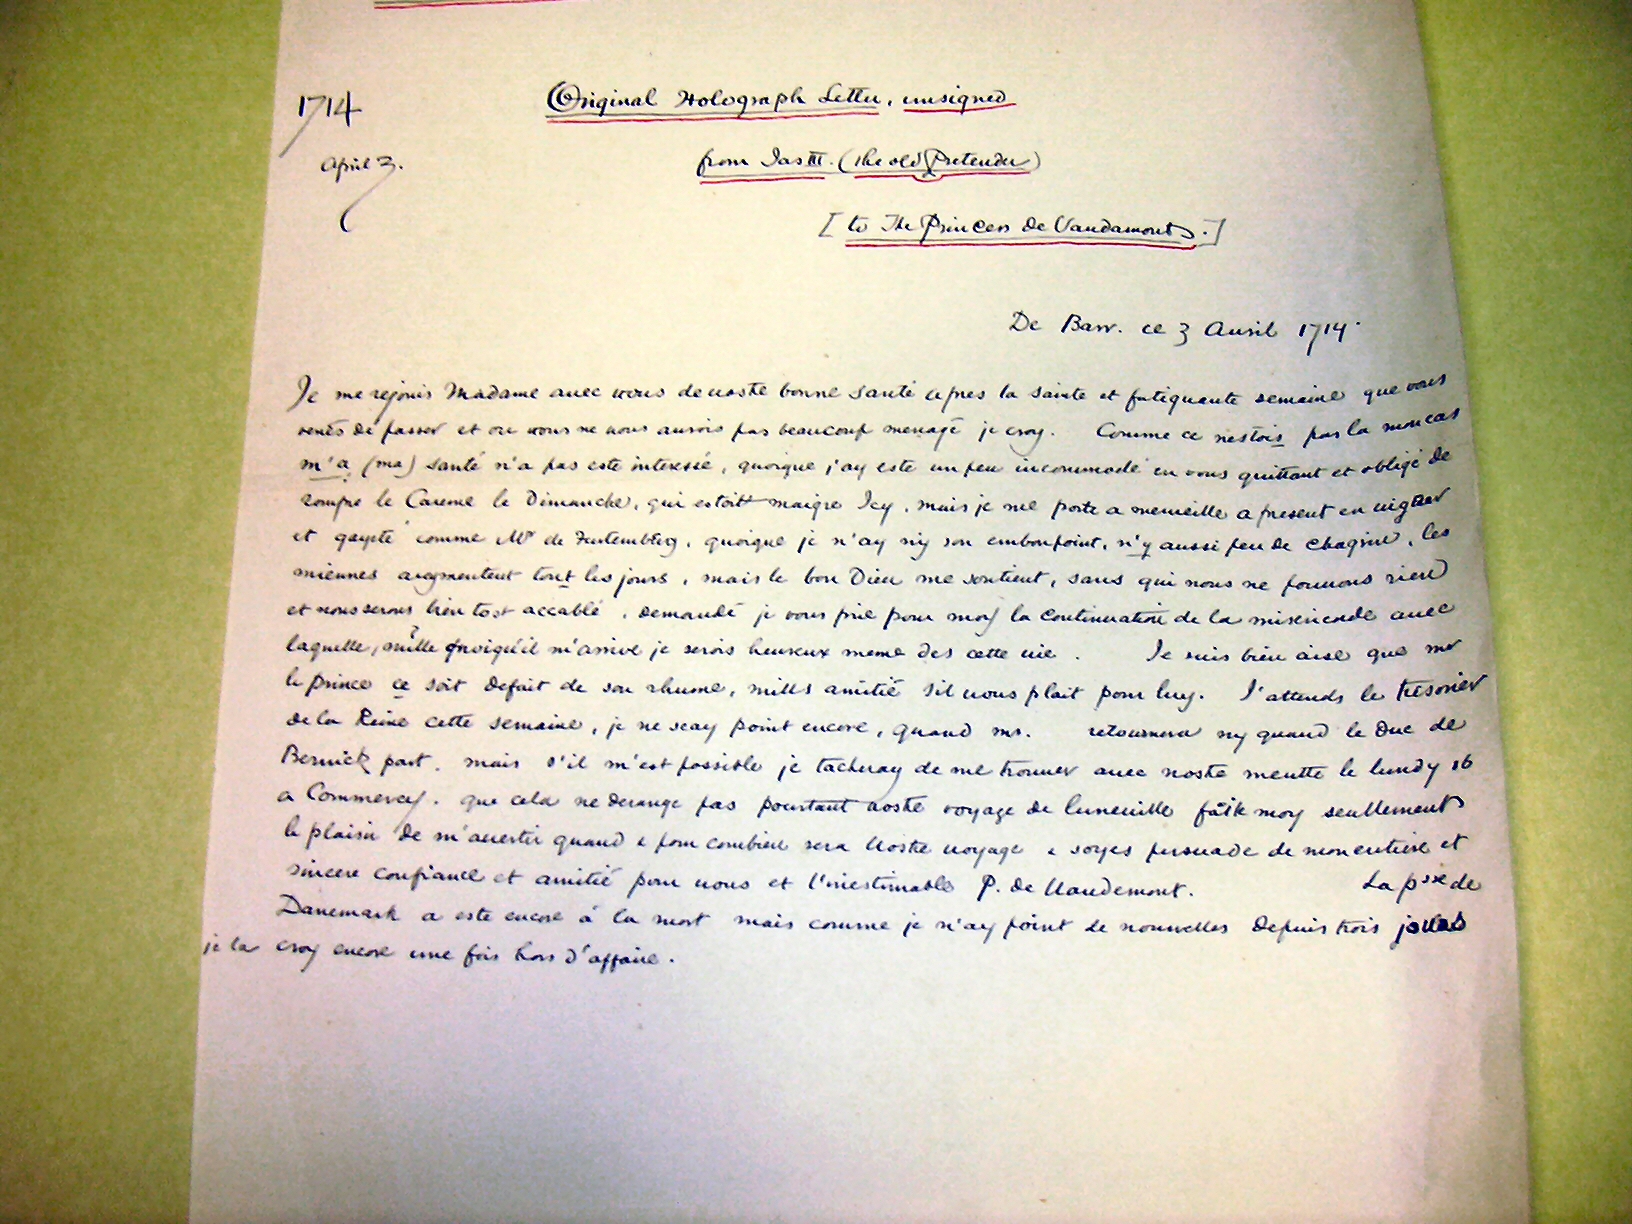 1714
April 3.
Original Holograph Letter, unsigned
from Jas III. (the old Pretender)
[to The Princess de Vaudamont.]
De Barr. ce 3 Avril 1714.
Je me rejouis Madame avec vous de vostre bonne santé apres la sainte et fatiguante semaine que vous
venés de passer et ou vous ne vous aurois pas beaucoup menagé je croy. Comme ce nestois pas la mon cas
m'a (ma) santé n'a pas este interessé, quoique j'ay este un peu incommodé en vous quittant et obligé de
rompre le Careme le Dimanche, qui estoitt maigre Icy, mais je me porte a merveille a present en vigueur
et gayeté comme Mr de, quoique je n'ay n'y son embonpoint, n'y aussi peu de chagrin, les
miennes augmentent tout les jours, mais le bon Dieu me soutient, sans qui nous ne pouvons rien
et nous serons bien tost accablé, demandé je vous prie pour moy la continuation de la misericorde avec
laquelle, quoiqu'il m'arrive je serois heureux meme des cette vie. Je suis bien aise que mr
le prince ce soit defait de son rhume, mills amitié s'il vous plait pour luy. J'attends le tresorier
de la Reine cette semaine, je ne scay point encore, quand mr. retournera ny quand le Duc de
Berwick part, mais s'il m'est possible je tacheray de me trouver avec nostre meutte le lundy 16
a Commercy. que cela ne derange pas pourtant vostre voyage de luneville faite moy seullement
le plaisir de m'avertir quand & pour combien sera Vostre voyage & soyes persuade de mon entiere et
sincere confiance et amitié pour vous et l'inestimable P. de Vaudemont. La psse de
Danemark a este encore à la mort mais comme je n'ay point de nouvelles depuis trois jours
je la croy encore une fois hors d'affaire.